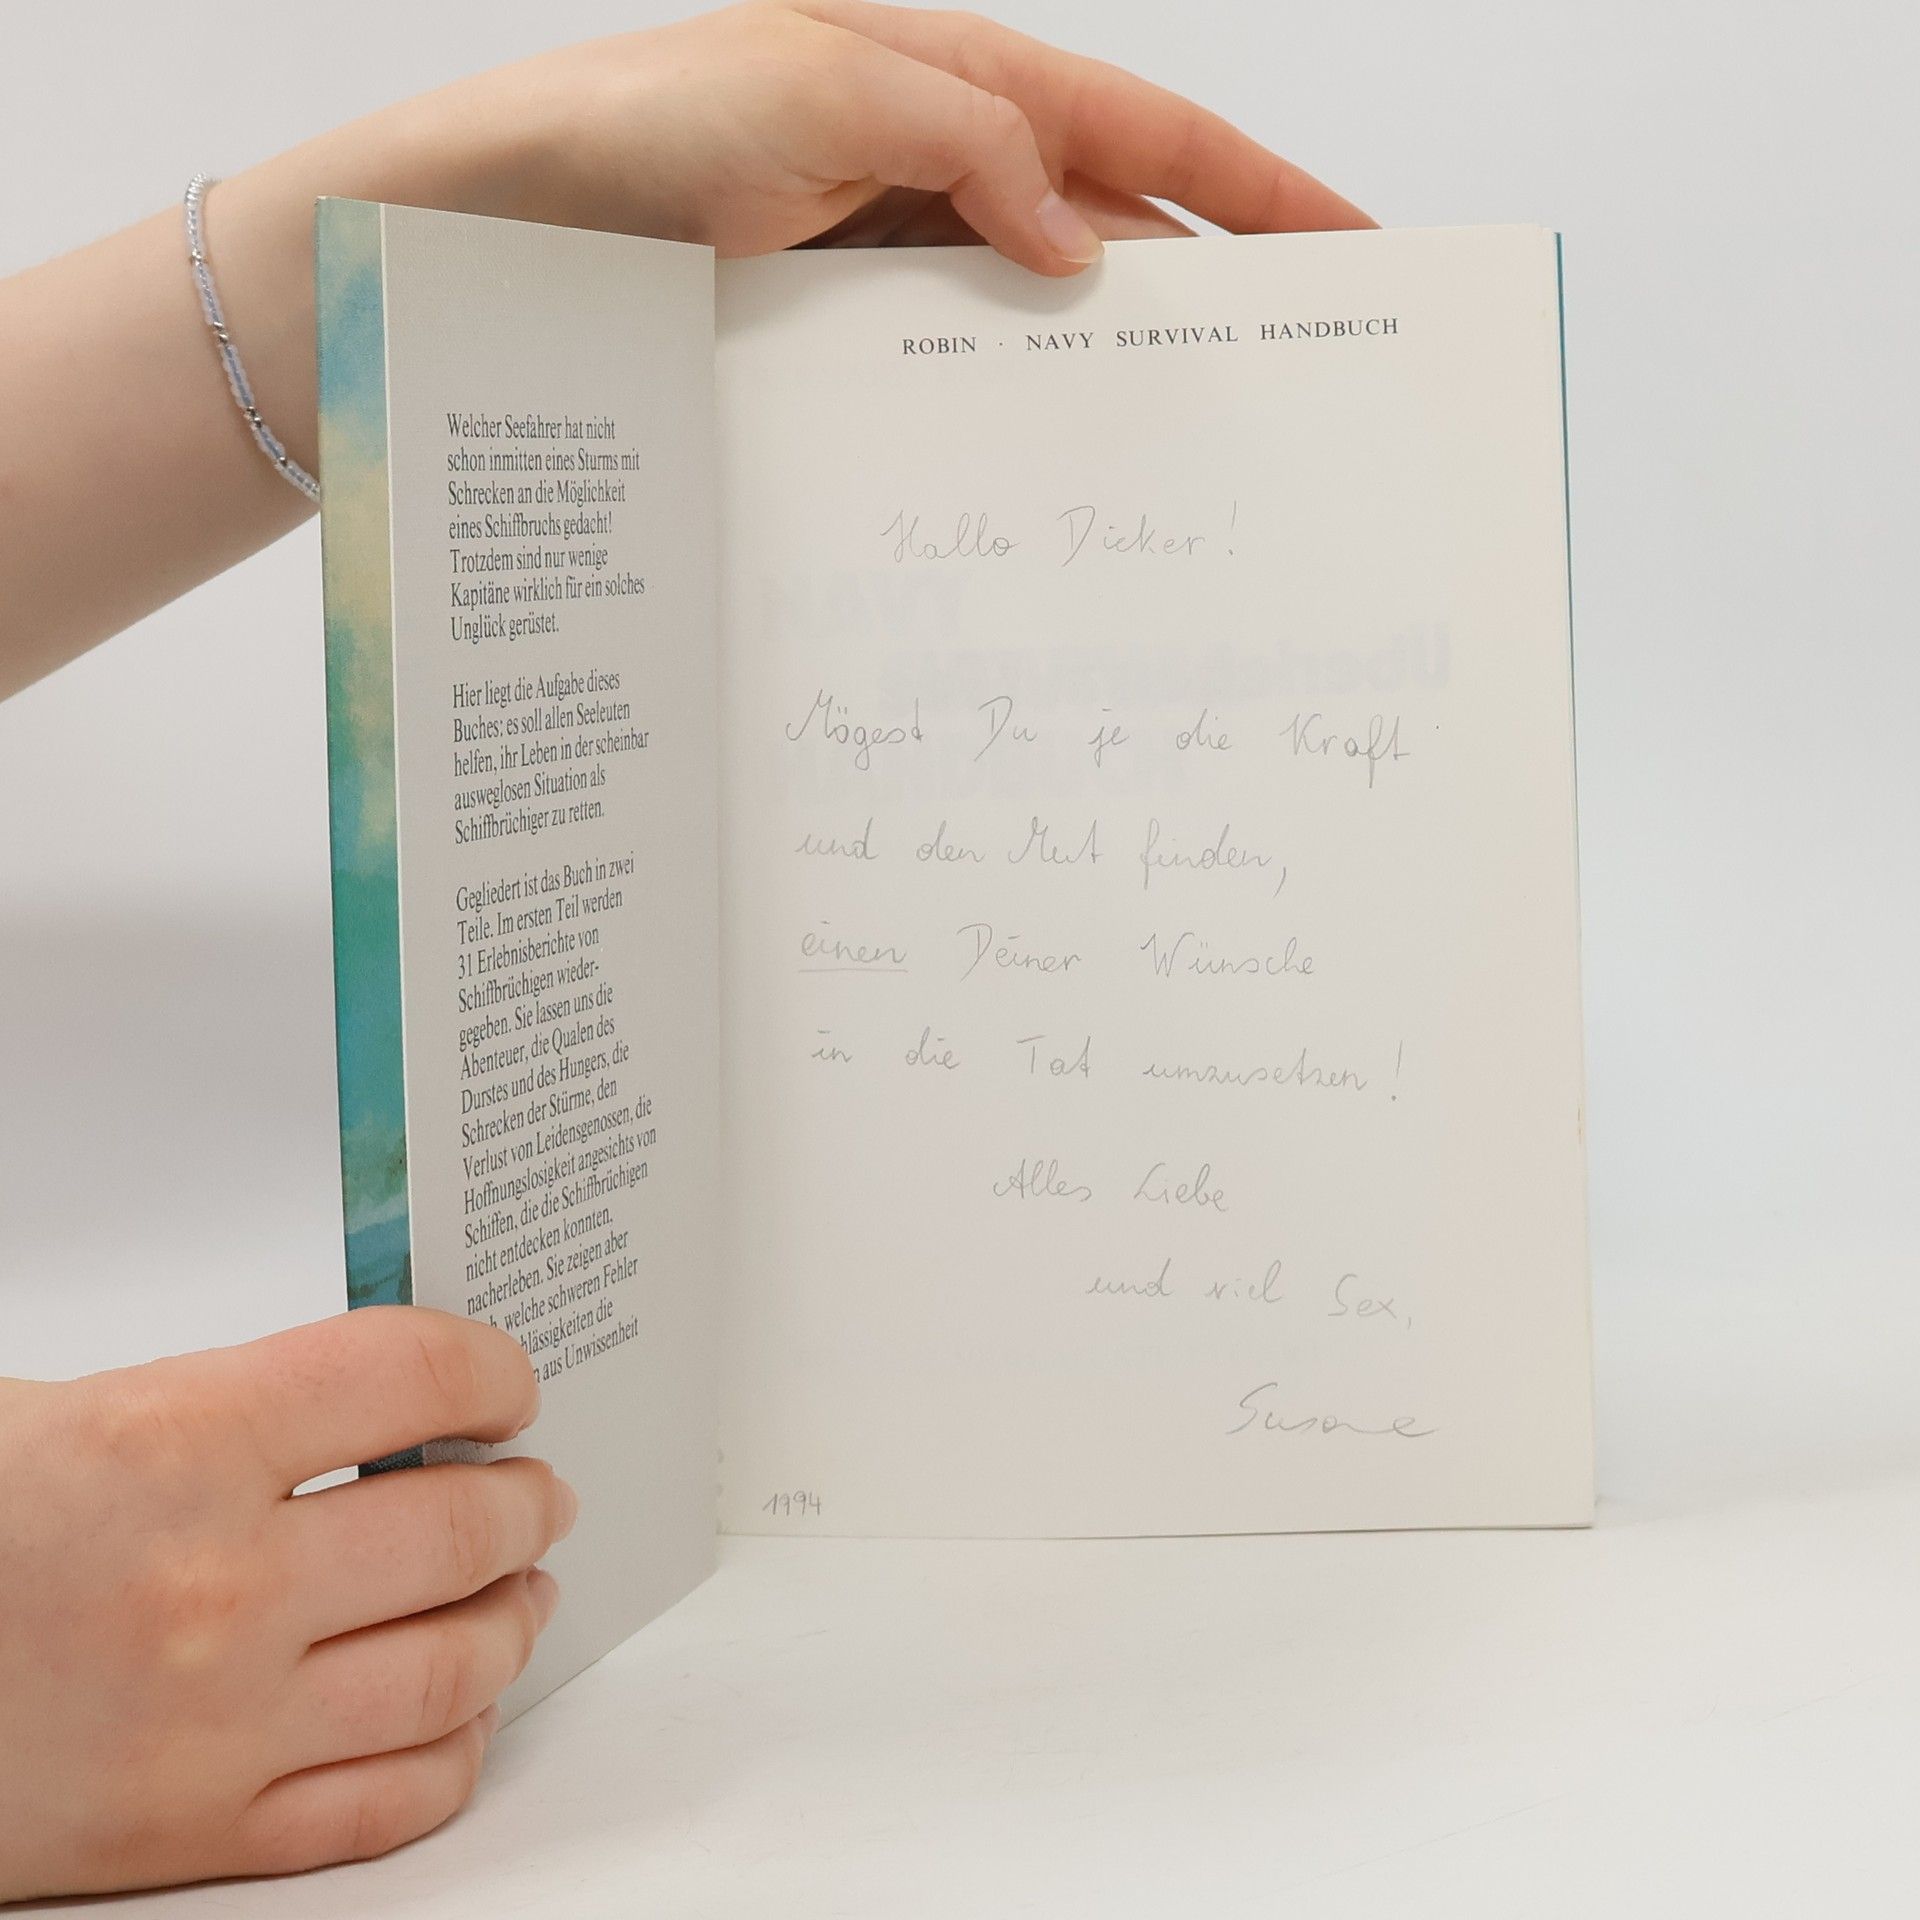 Welcher Seefahrer hat nicht
schon inmitten eines Sturms mit
Schrecken an die Möglichkeit
eines Schiffbruchs gedacht!
Trotzdem sind nur wenige
Kapitäne wirklich für ein solches
Unglück gerüstet.
Hier liegt die Aufgabe dieses
Buches; es soll allen Seeleuten
helfen, ihr Leben in der scheinbar
ausweglosen Situation als
Schiffbrüchiger zu retten.
Gegliedert ist das Buch in zwei
Teile. Im ersten Teil werden
31 Erlebnisberichte von
Schiffbrüchigen wieder-
gegeben. Sie lassen uns die
Abenteuer, die Qualen des
Durstes und des Hungers, die
Schrecken der Stürme, den
Verlust von Leidensgenossen, die
Hoffnungslosigkeit angesichts von
Schiffen, die die Schiffbrüchigen
nicht entdecken konnten,
nacherleben. Sie zeigen aber
welche schweren Fehler
die
aus Unwissenheit
ROBIN · NAVY SURVIVAL HANDBUCH
Hallo Dicker!
Mögest Du je die Kraft
und den Mut finden,
einen Deiner Wünsche
in die Tat umzusetzen!
Alles Liebe
und viel Sex,
Susanne
1994